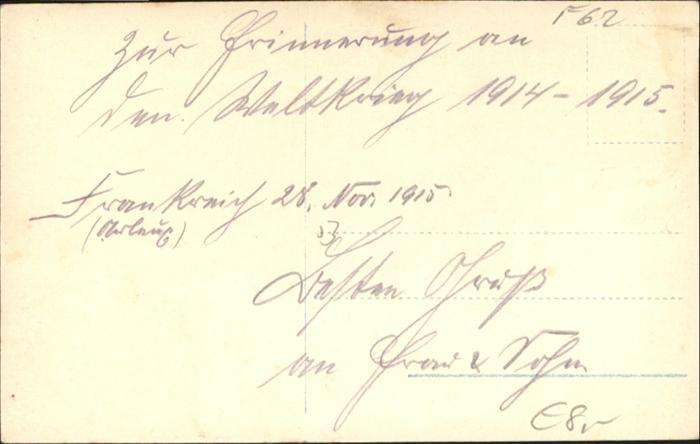 F62
Zur Erinnerung an
den Weltkrieg 1914 - 1915.
Frankreich 28. Nov. 1915
Besten Gruß
an Frau & Sohn
€8,-